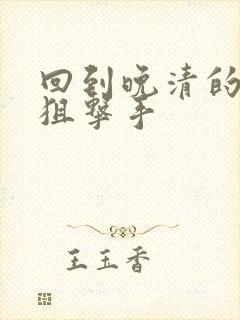 回到晚清的
狙撃手
王玉香